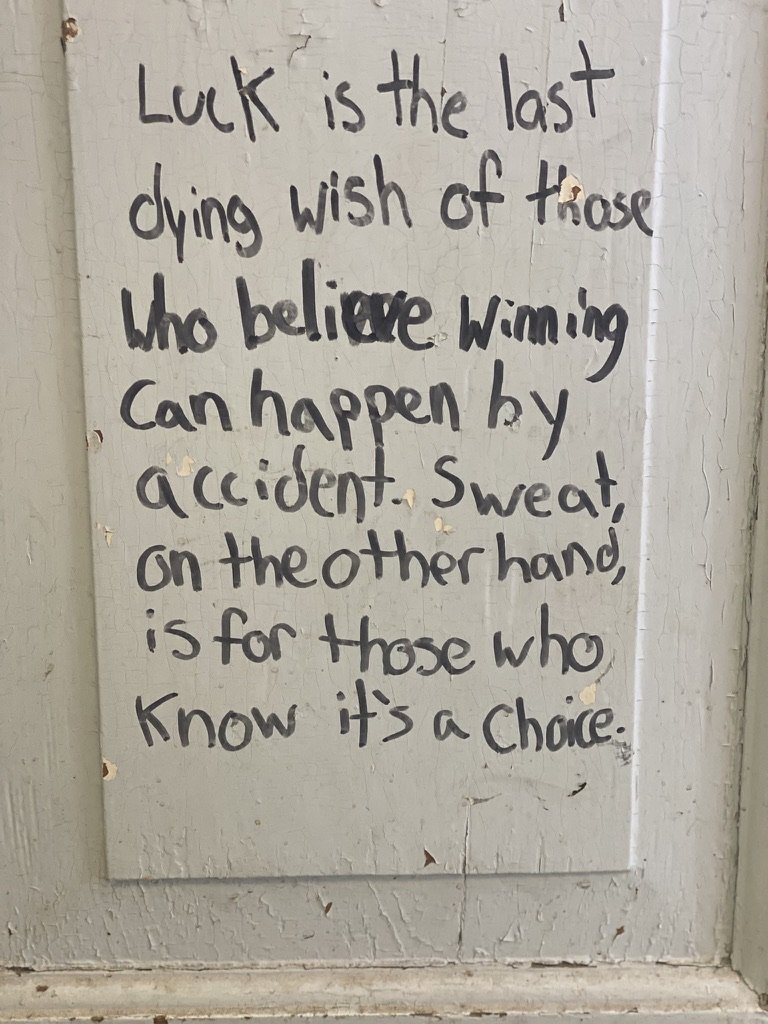 Luck is the last
dying wish of those
Who believe Winning
can happen by
accident. Sweat,
on the other hand,
is for those who
Know it's a Choice.